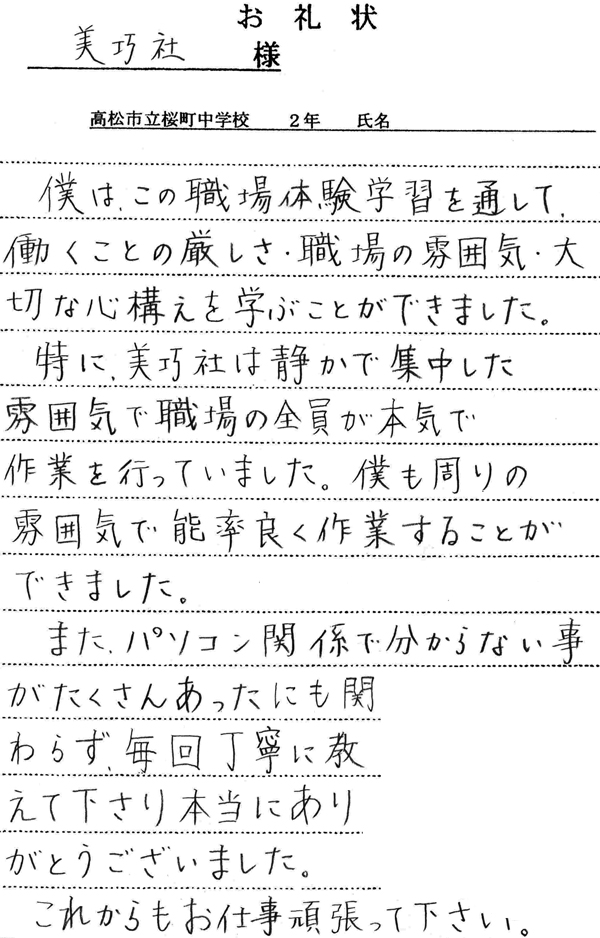 お礼状
美巧社 様
高松市立桜町中学校 2年 氏名
僕は、この職場体験学習を通して、
働くことの厳しさ・職場の雰囲気・大
切な心構えを学ぶことができました。
特に、美巧社は静かで集中した
雰囲気で職場の全員が本気で
作業を行っていました。僕も周りの
雰囲気で能率良く作業することが
できました。
また、パソコン関係で分からない事
がたくさんあったにも関
わらず、毎回丁寧に教
えて下さり本当にあり
がとうございました。
これからもお仕事頑張って下さい。